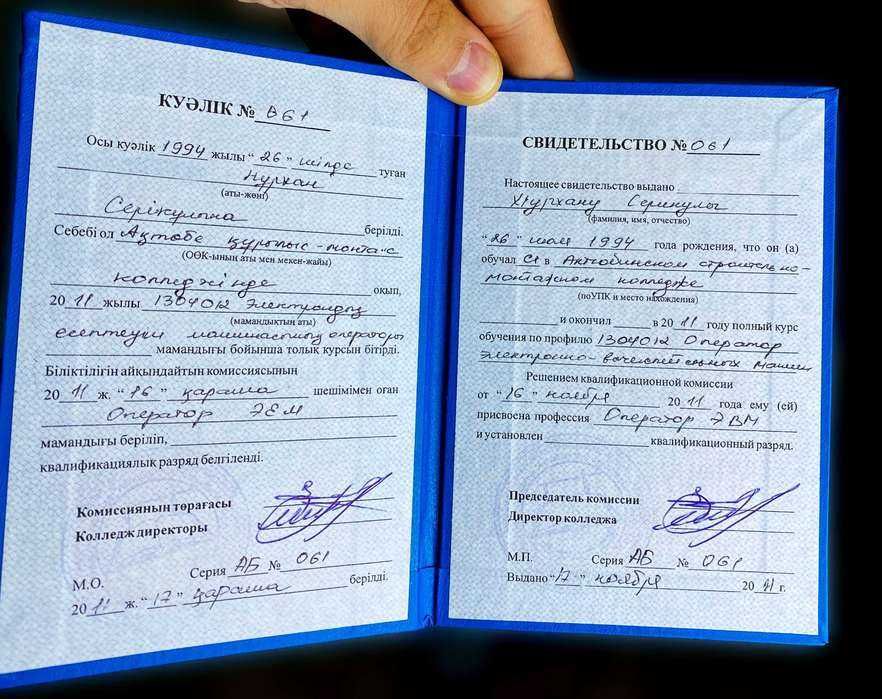 КУӘЛІК № 061
Осы куәлік 1994 жылы "26" шілде туған
Нұрхан
(аты-жөні)
Серіқұлына берілді.
Себебі ол Ақтөбе құрылыс-монтаж
(ООК-ының аты мен мекен-жайы)
колледжінде оқып,
2011 жылы 1304012 Электрондық
(мамандықтың аты)
есептеуіш машинасының операторы
мамандығы бойынша толық курсын бітірді.
Біліктілігін айқындайтын комиссияның
2011 ж. "16" қараша шешімімен оған
Оператор ЭЕМ
мамандығы беріліп,
квалификациялық разряд белгіленді.
Комиссияның төрағасы
Колледж директоры
Серия АБ № 061
М.О.
2011 ж. "17" қараша берілді.
СВИДЕТЕЛЬСТВО № 061
Настоящее свидетельство выдано
Нурхану
(фамилия, имя, отчество)
"26" июля 1994 года рождения, что он (а)
обучался в Актюбинском строительно-
монтажном колледже
(поУПК и место нахождения)
и окончил в 2011 году полный курс
обучения по профилю 1304012 Оператор
электронно-вычеслительных машин
Решением квалификационной комиссии
от "16" ноября 2011 года ему (ей)
присвоена профессия Оператор ЭВМ
и установлен квалификационный разряд.
Председатель комиссии
Директор колледжа
М.П. Серия АБ № 061
Выдано "17" ноября 2011 г.